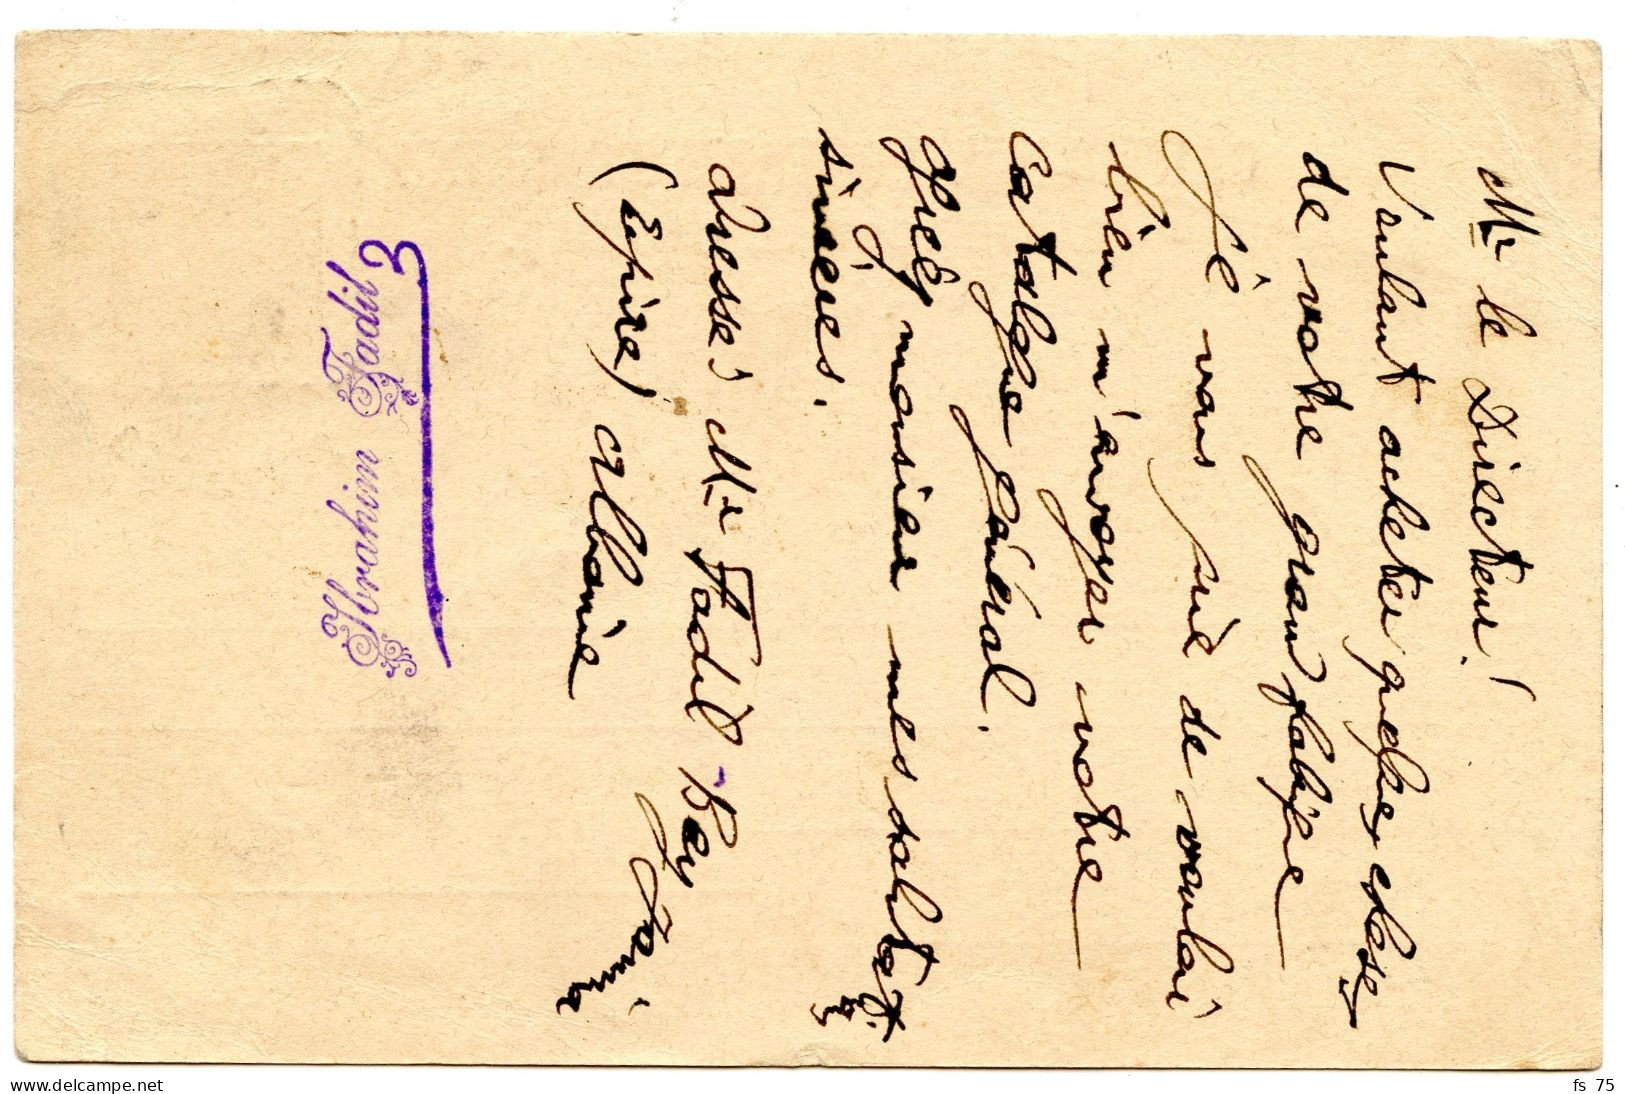 Mr le Directeur!
Voulant acheter quelques choses
de votre grand fabrique
Je vous prie de voulai
bien m'envoyer votre
Catalgue général.
Agreéz monsieur mes salutat.
sinceres.
adresse: Mr Fadil Bey
(Epire) Albanie Janina
Ibrahim Fadil
3
www.delcampe.net
fs 75